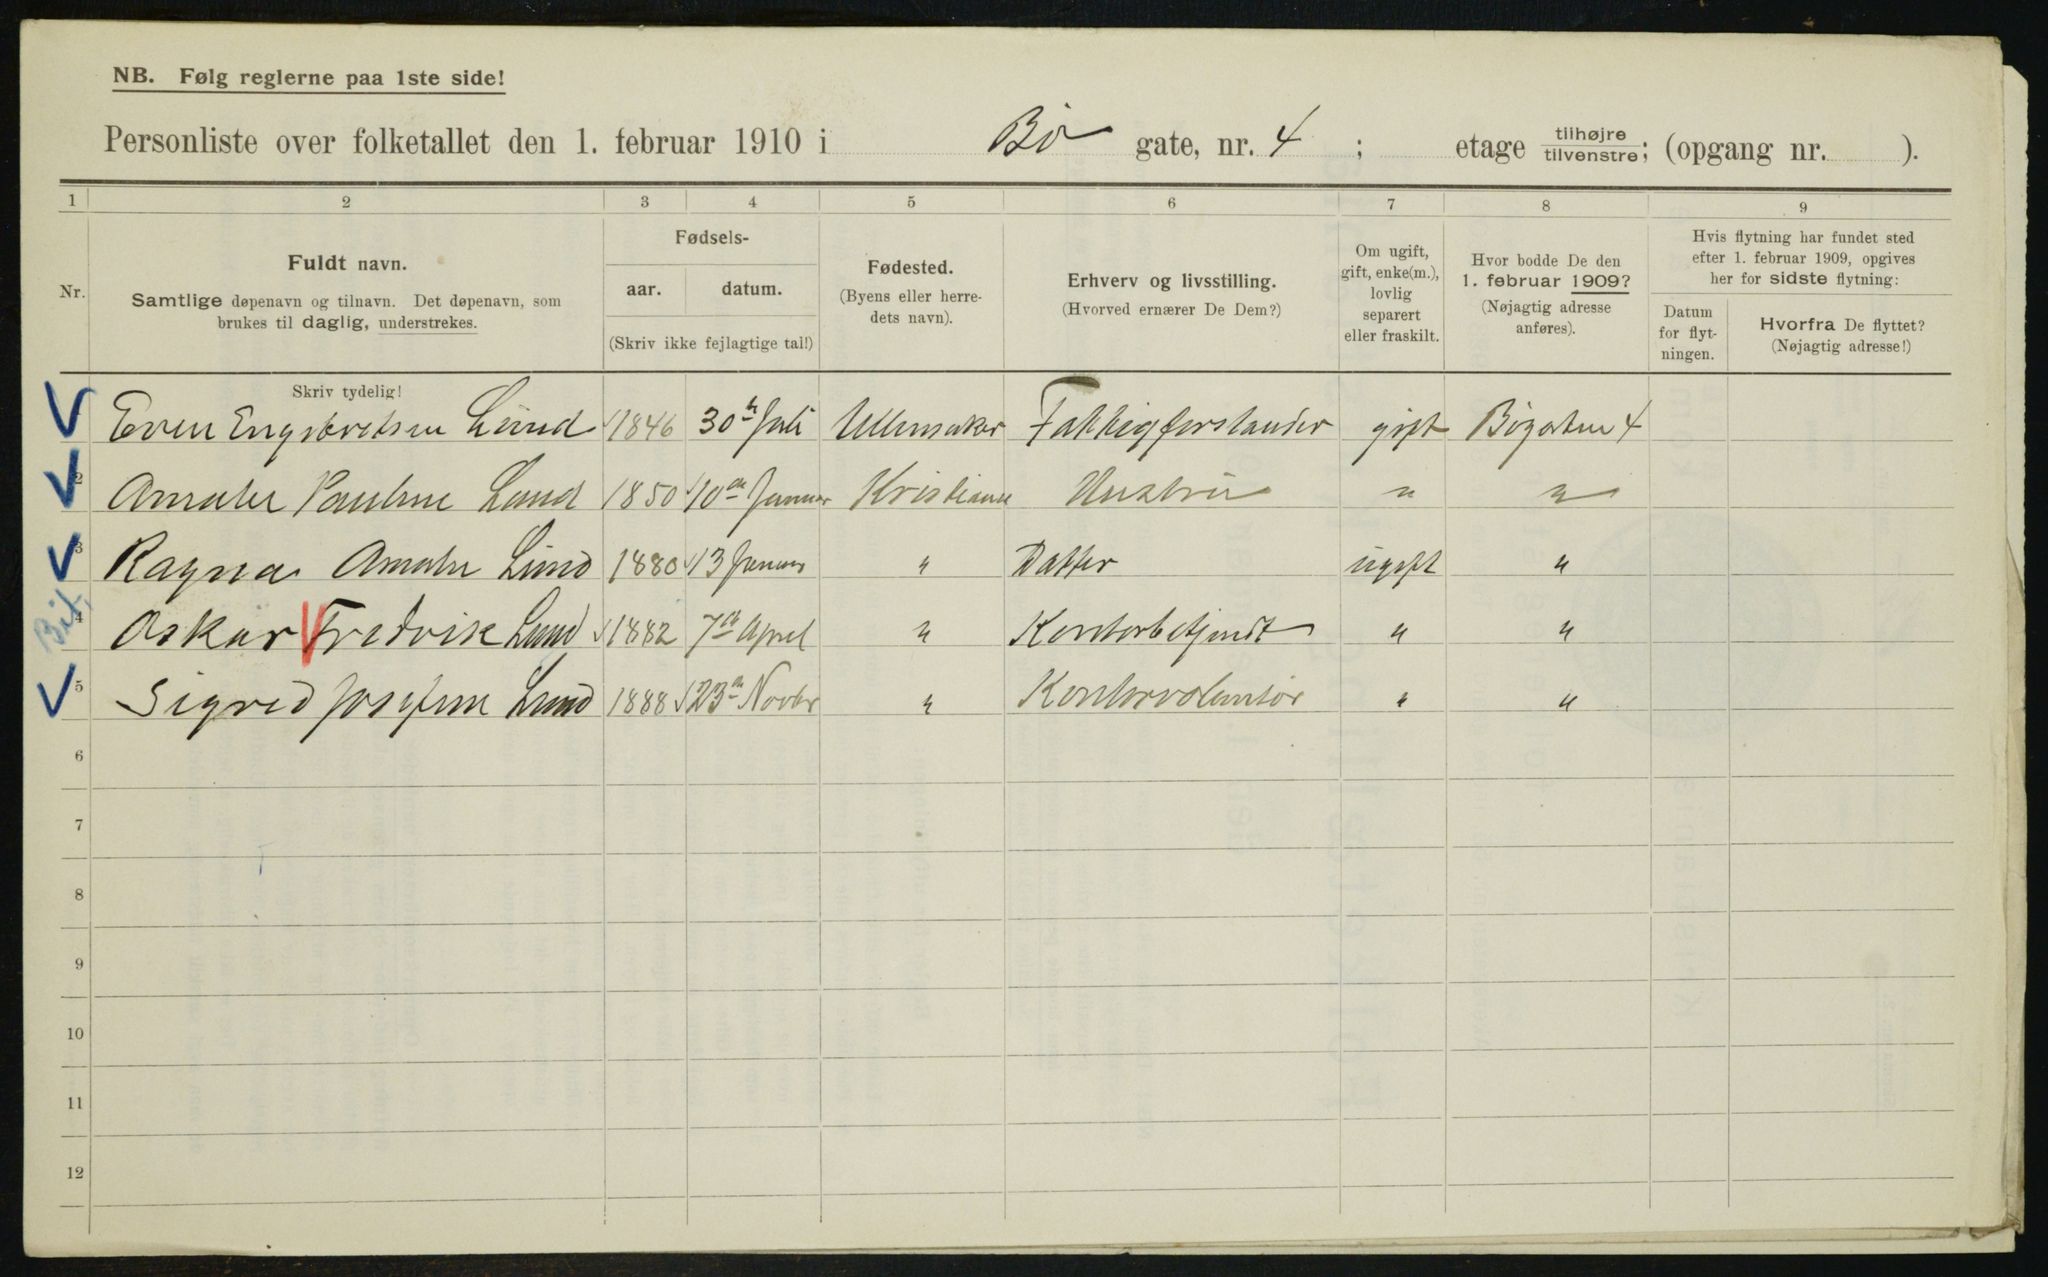 NB. Følg reglerne paa 1ste side!
Personliste over folketallet den 1. februar 1910 i Bø gate, nr. 4 ; etage tilhøjre tilvenstre; (opgang nr. ).
1 2 3 4 5 6 7 8 9
Nr.
Fuldt navn.
Samtlige døpenavn og tilnavn. Det døpenavn, som
brukes til daglig, understrekes.
Skriv tydelig!
Fødsels-
aar. datum.
(Skriv ikke fejlagtige tal!)
Fødested.
(Byens eller herre-
dets navn).
Erhverv og livsstilling.
(Hvorved ernærer De Dem?)
Om ugift,
gift, enke(m.),
lovlig
separert
eller fraskilt.
Hvor bodde De den
1. februar 1909?
(Nøjagtig adresse
anføres).
Hvis flytning har fundet sted
efter 1. februar 1909, opgives
her for sidste flytning:
Datum
for flyt-
ningen.
Hvorfra De flyttet?
(Nøjagtig adresse!)
Even Engebretsen Lund 1846 30th Juli Ullensaker Fattigforstander gift Bøgaten 4
2 Amalie Pauline Lund 1850 10de Januar Kristiania Hustru " "
3 Ragna Amalie Lund 1880 13 Januar " Datter ugift "
Bit.
4 Oskar Fredrik Lund 1882 7de April " Kontorbetjent " "
5 Sigrid Josefine Lund 1888 23de Novbr " Kontorvolontør " "
6
7
8
9
10
11
12